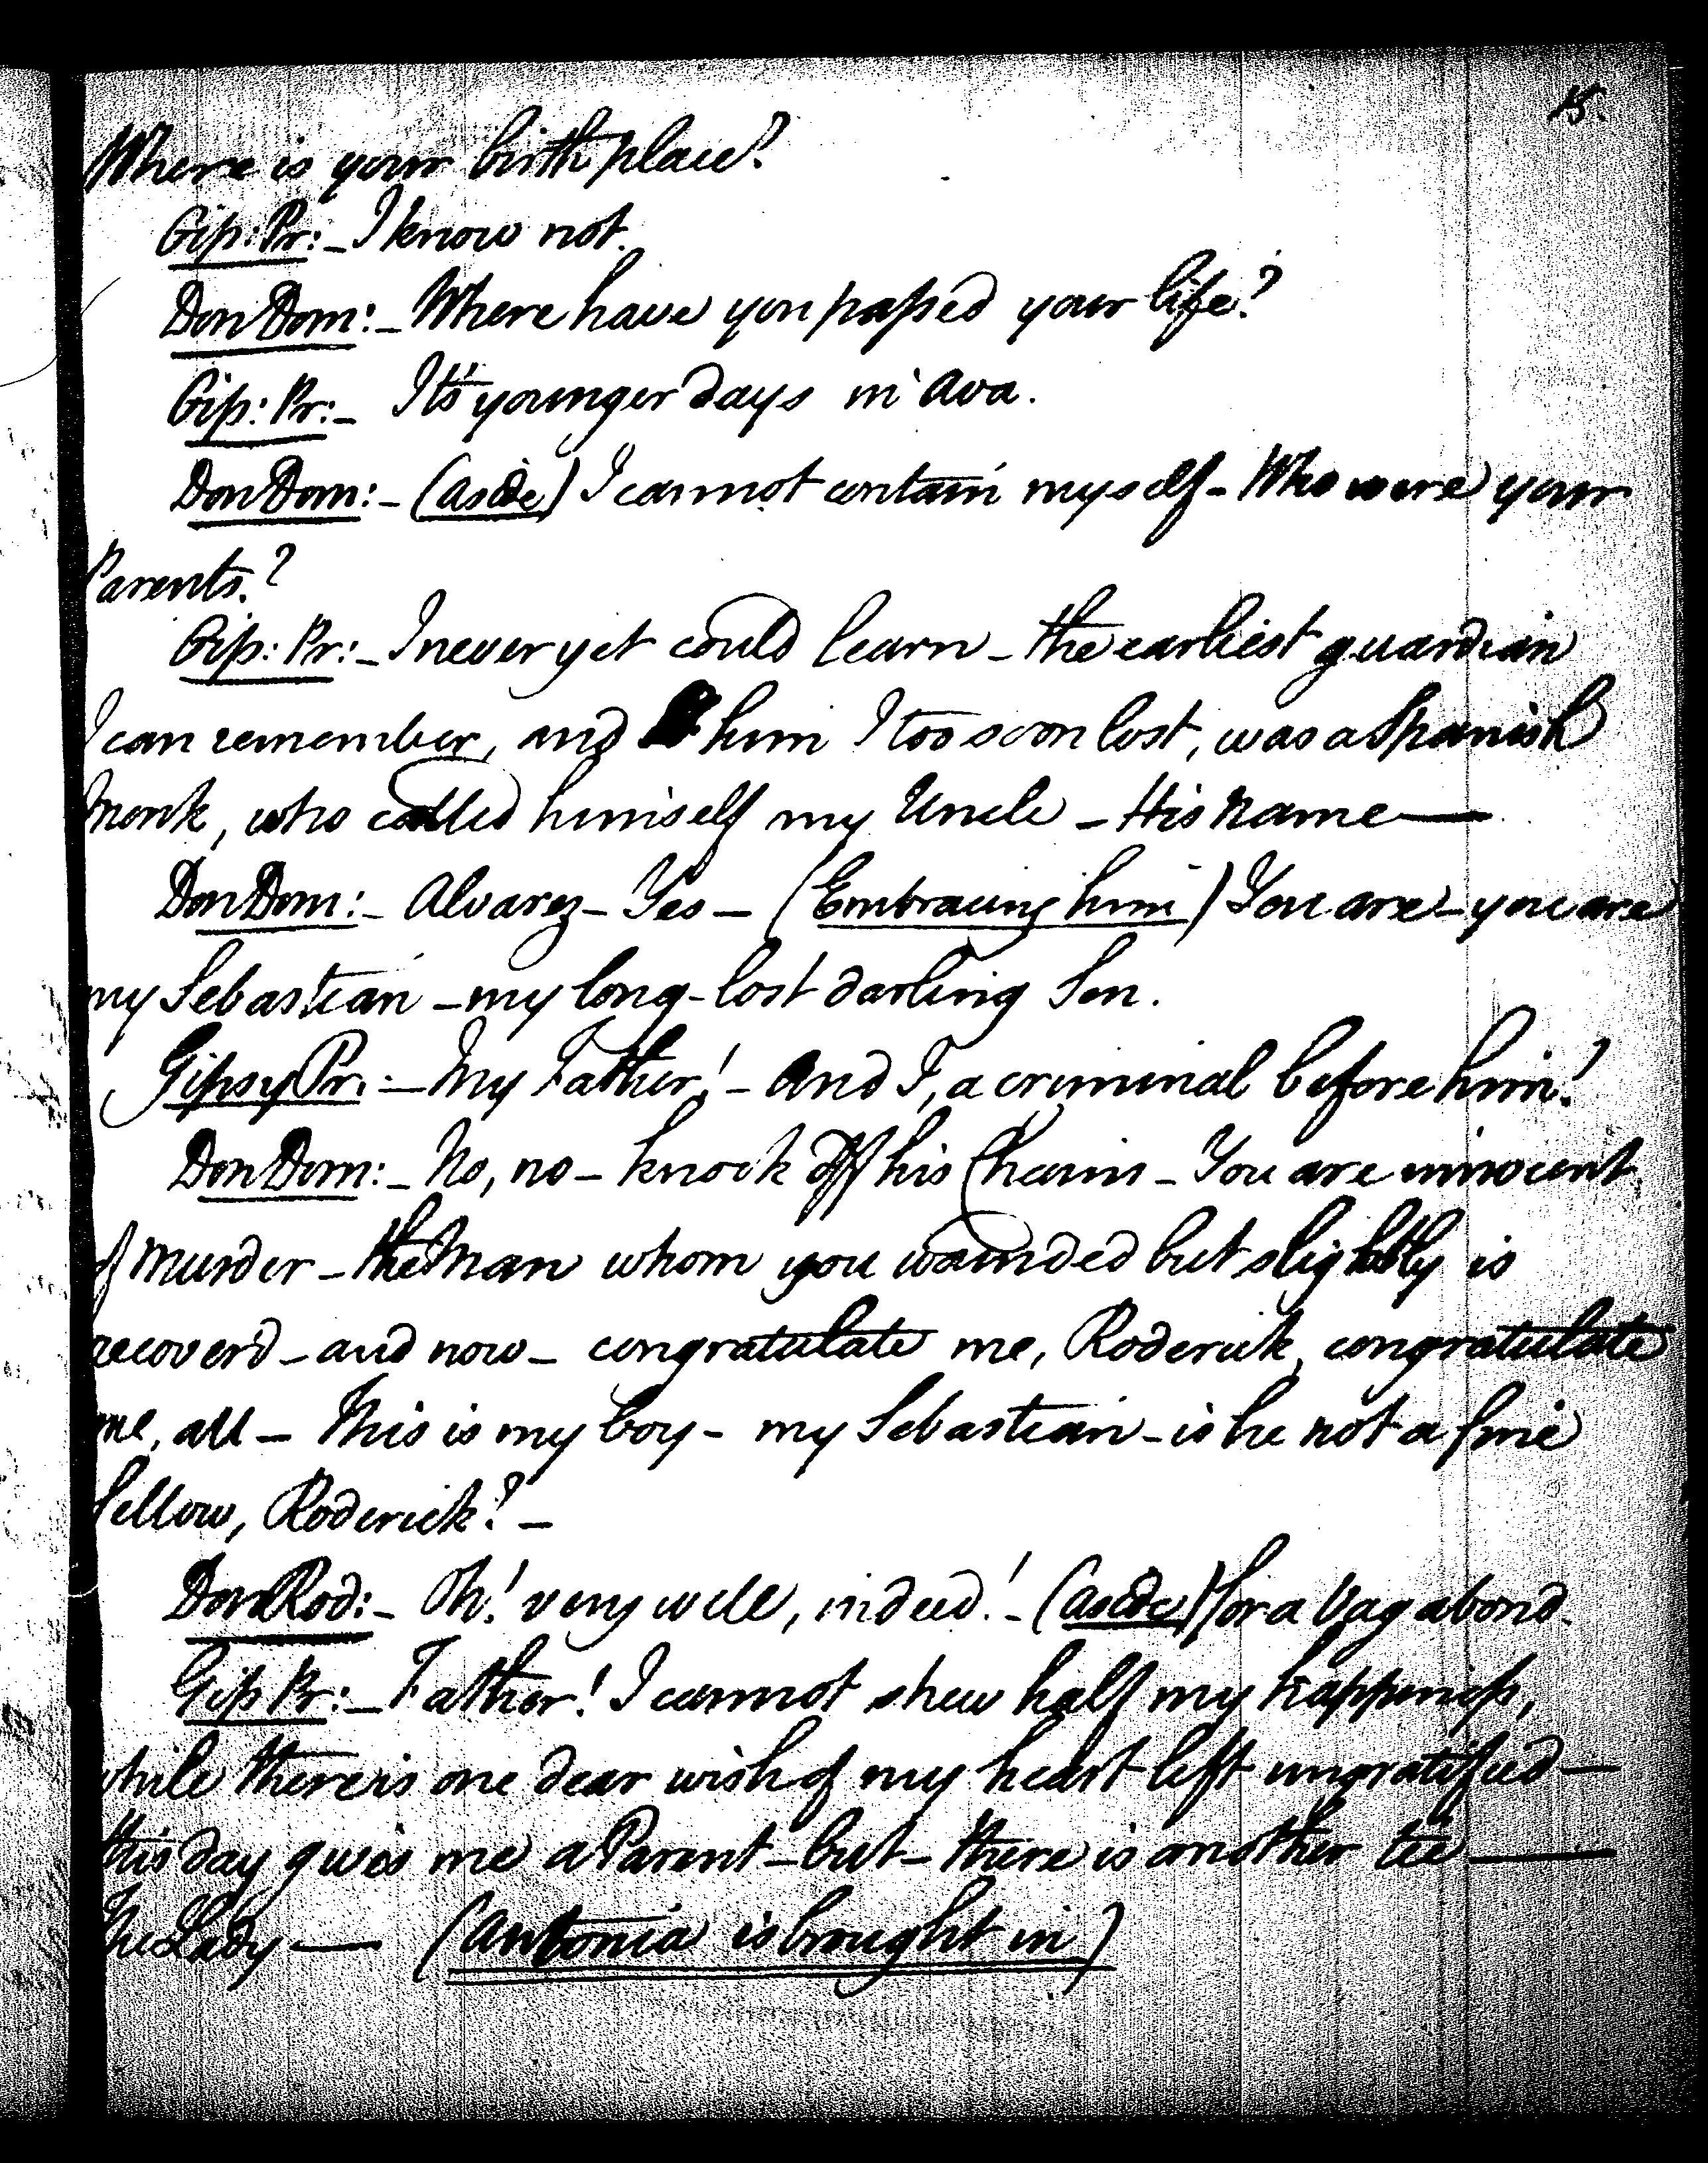 15.
Where is your birth place?
Gip: Pr: _ I know not.
Don Dom: _ Where have you paſsed your life?
Gip: Pr: _ It's younger days in Ava.
Don Dom: _ (aside) I cannot contain myself _ Who were your
Parents?
Gip: Pr: _ I never yet could learn _ the earliest guardian
I can remember, and him I too soon lost, was a Spanish
Monk, who called himself my Uncle _ His name —
Don Dom: _ Alvarez _ Yes — (Embracing him) You are _ you are
my Sebastian _ my long-lost darling Son.
Gipsy Pr: — My Father! _ And I, a criminal before him?
Don Dom: _ No, no _ knock off his Chains _ You are innocent
of Murder _ the Man whom you wounded but slightly is
recover'd _ and now _ congratulate me, Roderick, congratulate
me, all — This is my boy _ my Sebastian _ is he not a fine
fellow, Roderick? _
Don Rod: _ Oh! very well, indeed! _ (aside) for a Vagabond.
Gip Pr: _ Father! I cannot shew half my happineſs,
while there is one dear wish of my heart left ungratified —
this day gives me a Parent _ but _ there is another tie —
The Lady — (Antonia is brought in)